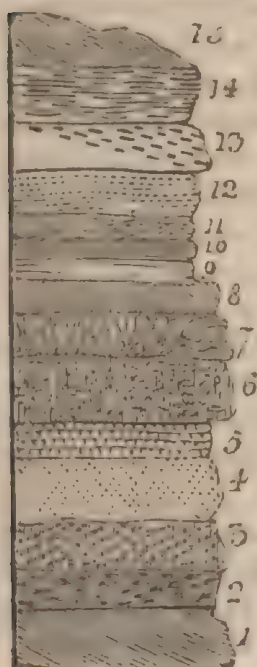 15
14
13
12
11
10
9
8
7
6
5
4
3
2
1